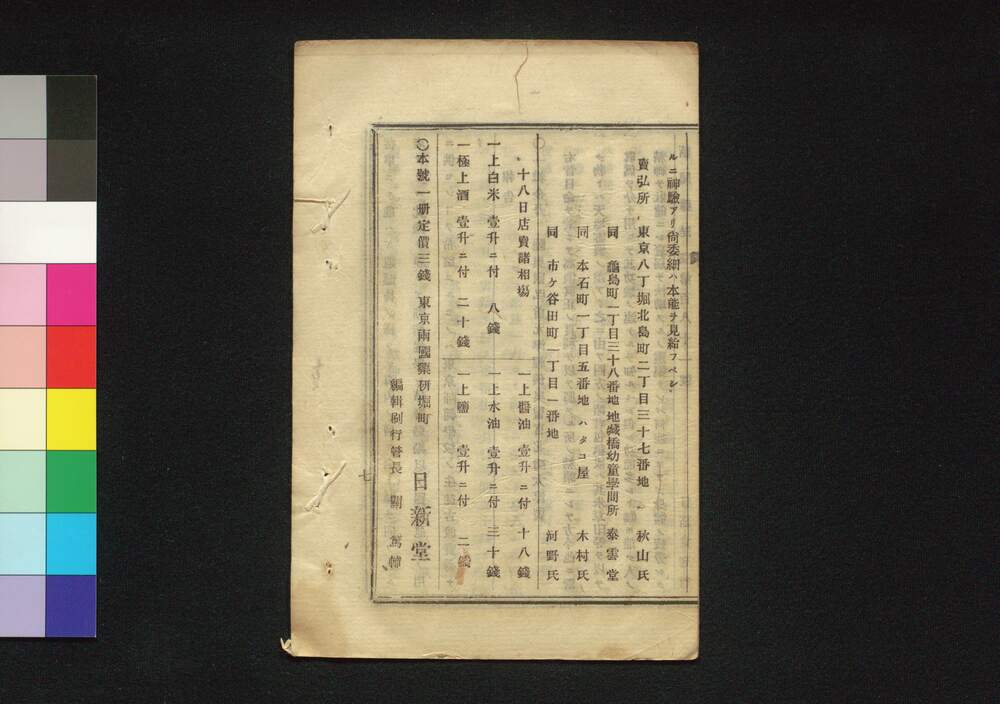 ルニ神驗アリ尙委細ハ本能ヲ見給フベシ
賣弘所 東京八丁堀北島町二丁目三十七番地 秋山氏
同 龜島町一丁目三十八番地地藏橋幼童學問所 泰雲堂
同 本石町一丁目五番地 ハタゴ屋 木村氏
同 市ケ谷田町一丁目一番地 河野氏
十八日店賣諸相塲
一上醬油 壹升ニ付 十八錢
一上白米 壹升ニ付 八錢
一上水油 壹升ニ付 三十錢
一極上酒 壹升ニ付 二十錢
一上鹽 壹升ニ付 二錢
〇本號一册定價三錢 東京兩國藥硏堀町 日新堂
編輯刷行管長 關 篤
七